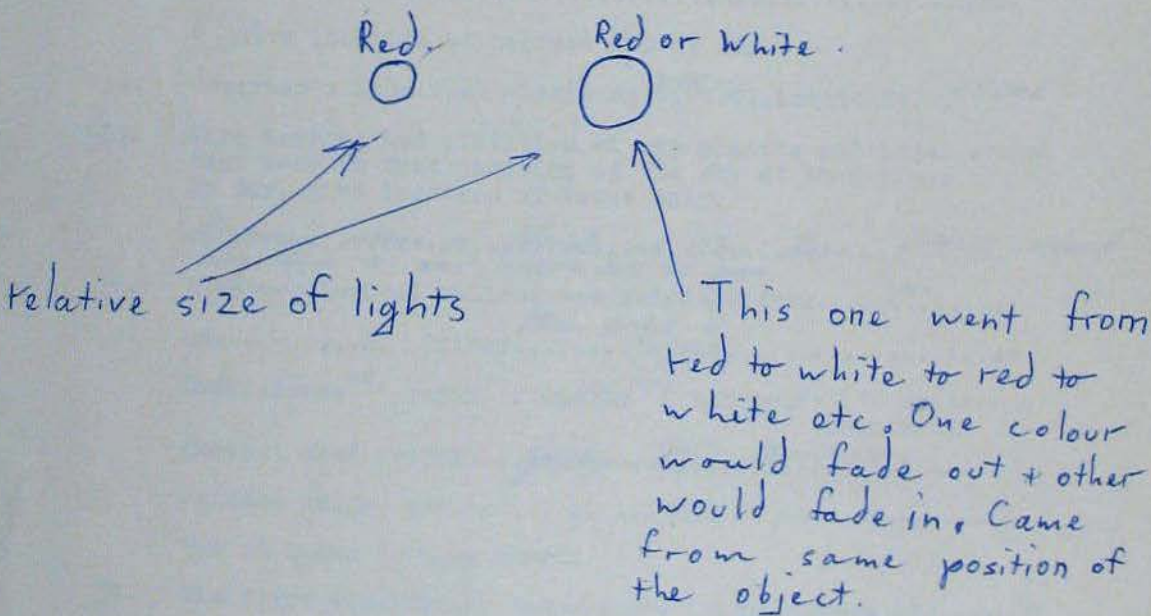 Red.
Red or White.
relative size of lights
This one went from
red to white to red to
white etc. One colour
would fade out + other
would fade in. Came
from same position of
the object.